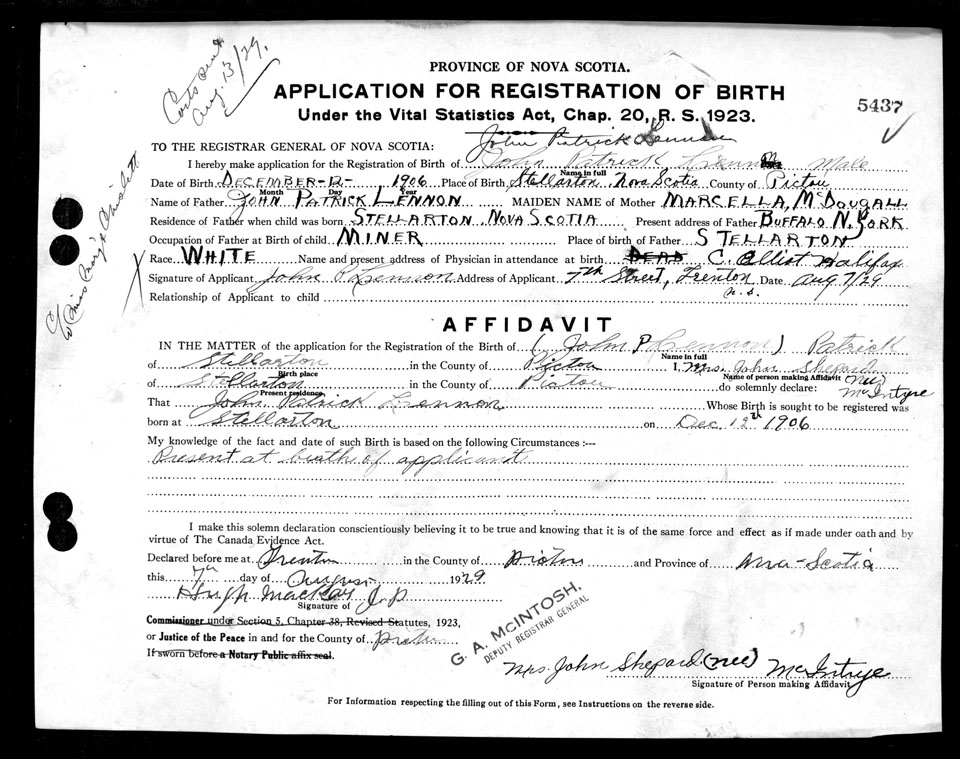 Aug. 13/29.
PROVINCE OF NOVA SCOTIA.
APPLICATION FOR REGISTRATION OF BIRTH
5437
Under the Vital Statistics Act, Chap. 20, R. S. 1923.
John Patrick Lennon
TO THE REGISTRAR GENERAL OF NOVA SCOTIA:
I hereby make application for the Registration of Birth of John Patrick Lennon Male
Name in full
Date of Birth DECEMBER-12- 1906 Place of Birth Stellarton, Nova Scotia County of Pictou
Month Day Year
Name of Father JOHN PATRICK LENNON MAIDEN NAME of Mother MARCELLA, McDOUGALL
Residence of Father when child was born STELLARTON NOVA SCOTIA Present address of Father BUFFALO N. YORK
Occupation of Father at Birth of child MINER Place of birth of Father STELLARTON
Race WHITE Name and present address of Physician in attendance at birth DEAD C. Elliot Halifax
Signature of Applicant John P Lennon Address of Applicant 7th Street, Trenton Date Aug 7/29
N.S.
Relationship of Applicant to child
AFFIDAVIT
IN THE MATTER of the application for the Registration of the Birth of (John P Lennon) Patrick
Name in full
of Stellarton in the County of Pictou I, Mrs. John Shepard
Birth place Name of person making Affidavit (nee)
of Stellarton in the County of Pictou do solemnly declare: McIntyre
Present residence
That John Patrick Lennon Whose Birth is sought to be registered was
born at Stellarton on Dec 12th 1906
My knowledge of the fact and date of such Birth is based on the following Circumstances :—
Present at birth of applicant
I make this solemn declaration conscientiously believing it to be true and knowing that it is of the same force and effect as if made under oath and by
virtue of The Canada Evidence Act.
Declared before me at Trenton in the County of Pictou and Province of Nova-Scotia
this 7th day of August 1929
Hugh MacKay J.P
Signature of
Commissioner under Section 5, Chapter 38, Revised Statutes, 1923,
or Justice of the Peace in and for the County of Pictou
If sworn before a Notary Public affix seal.
G. A. McINTOSH,
DEPUTY REGISTRAR GENERAL
Mrs. John Shepard (nee) McIntrye
Signature of Person making Affidavit
For Information respecting the filling out of this Form, see Instructions on the reverse side.